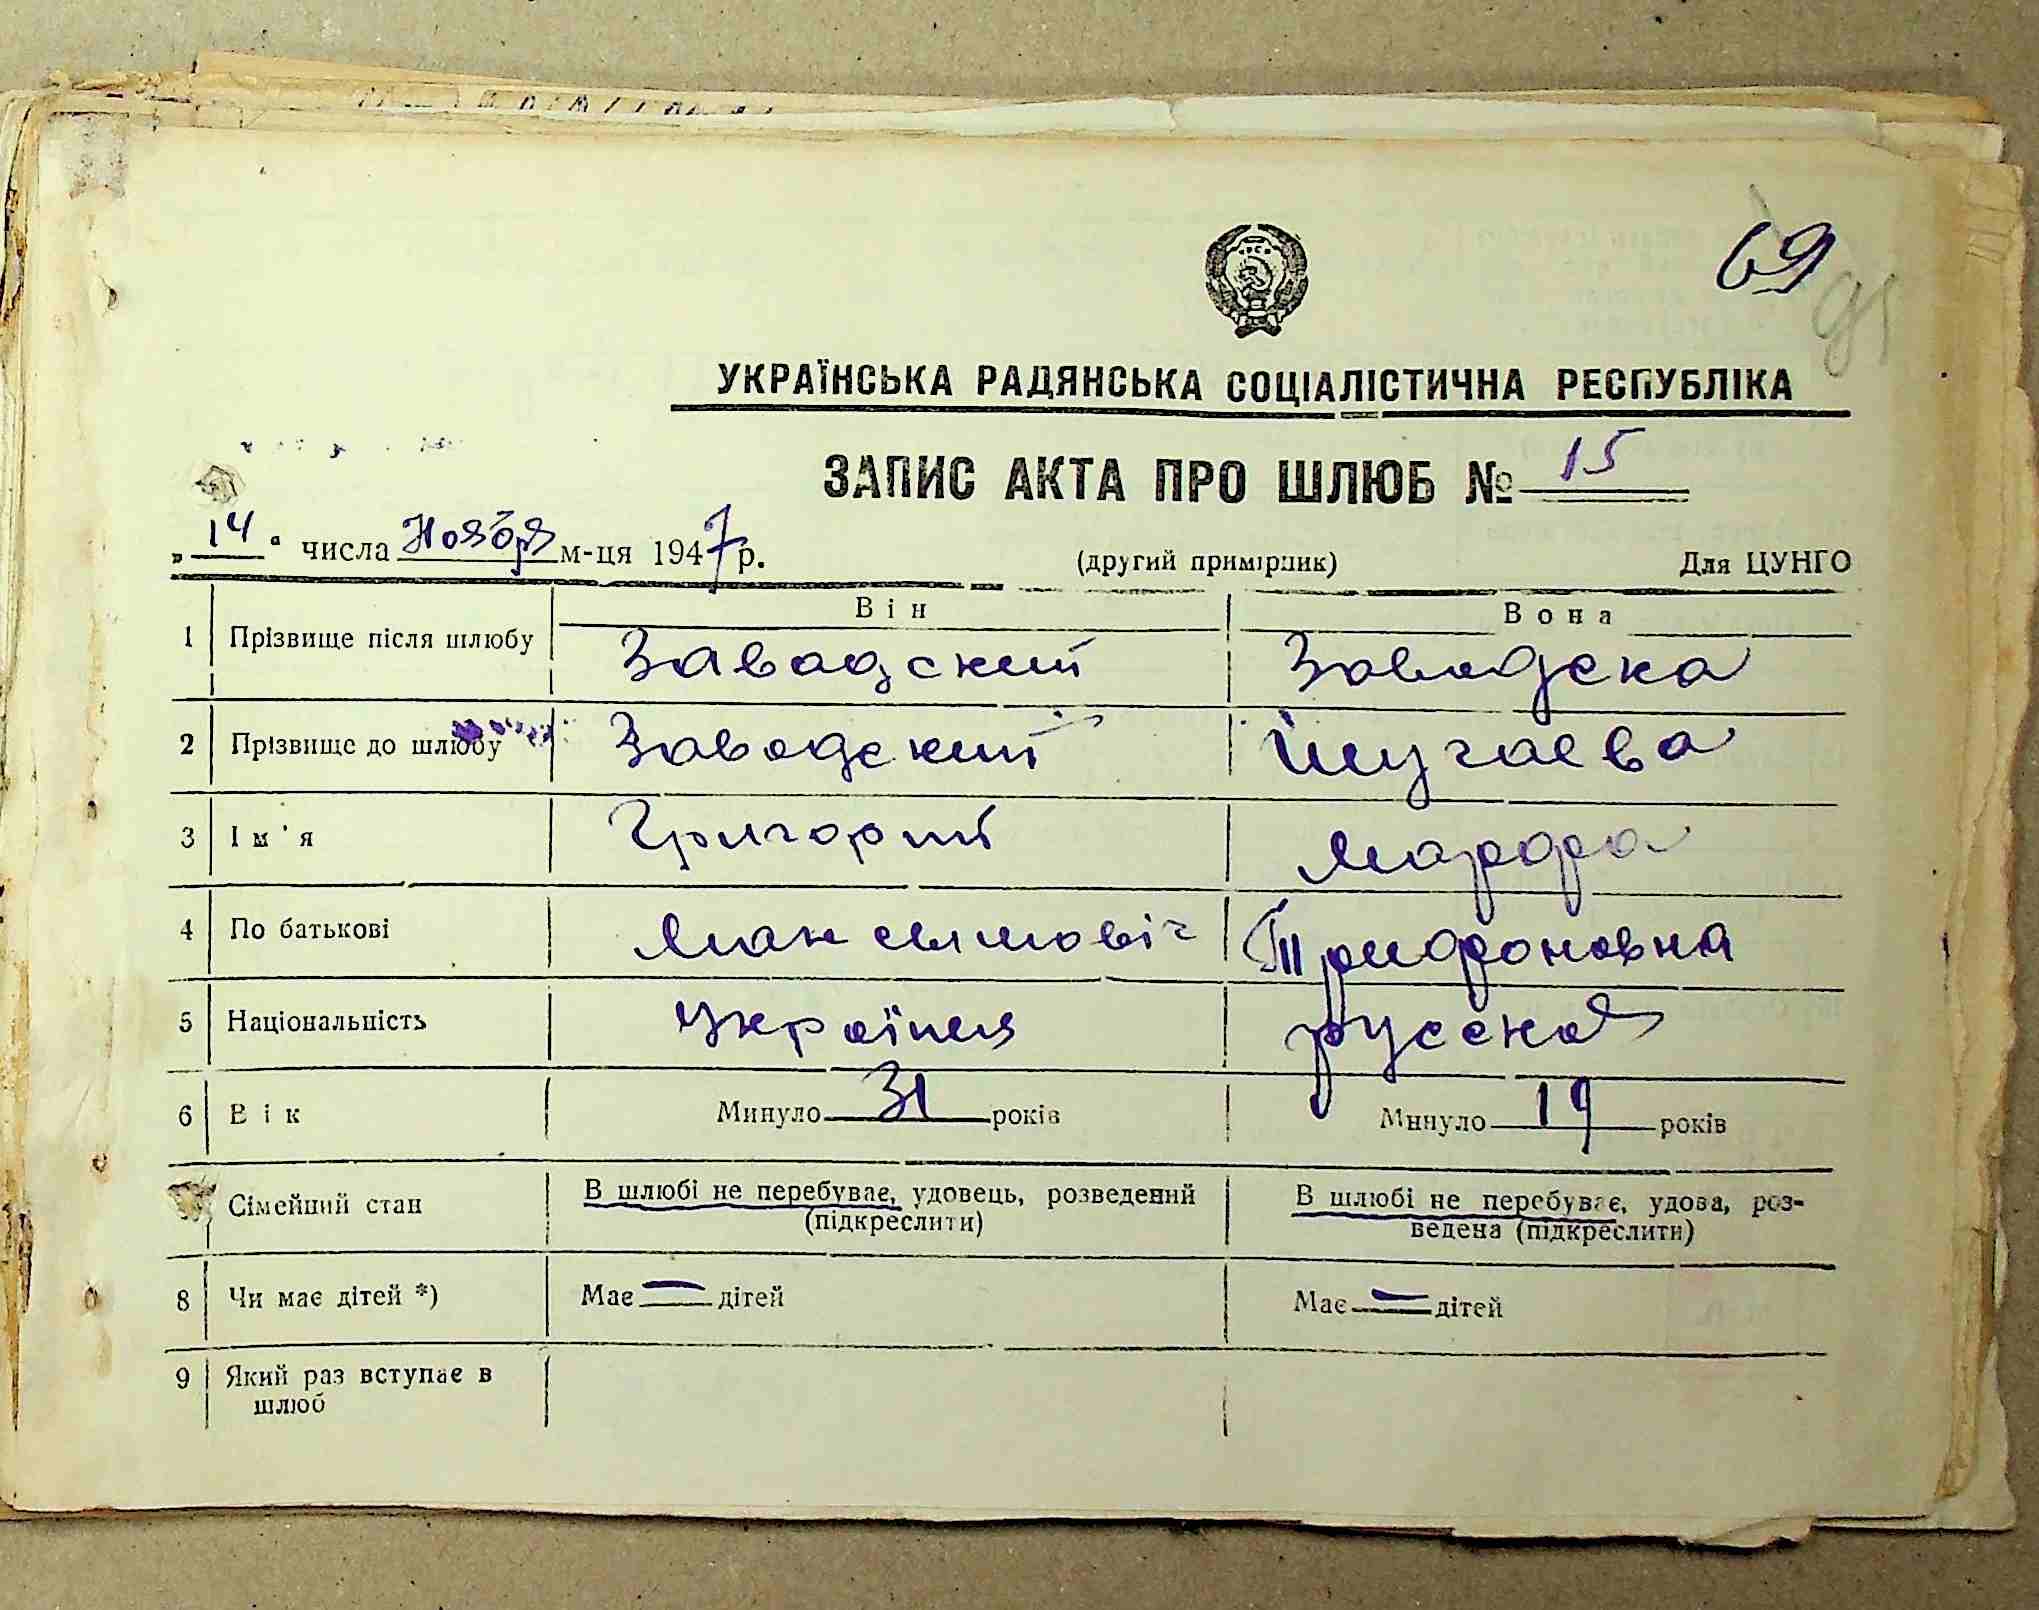 69
91
УКРАЇНСЬКА РАДЯНСЬКА СОЦІАЛІСТИЧНА РЕСПУБЛІКА
ЗАПИС АКТА ПРО ШЛЮБ № 15
„14“ числа Ноября м-ця 1947 р. (другий примірник) Для ЦУНГО
Він Вона
1 Прізвище після шлюбу Завадский Завадска
2 Прізвище до шлюбу Завадский Шугаева
3 Ім'я Григорий Марфа
4 По батькові Максимовіч Трифоновна
5 Національність Україния русская
6 Вік Минуло 31 років Минуло 19 років
Сімейний стан В шлюбі не перебуває, удовець, розведений (підкреслити) В шлюбі не перебуває, удова, роз-
ведена (підкреслити)
8 Чи має дітей *) Має — дітей Має — дітей
9 Який раз вступає в
шлюб